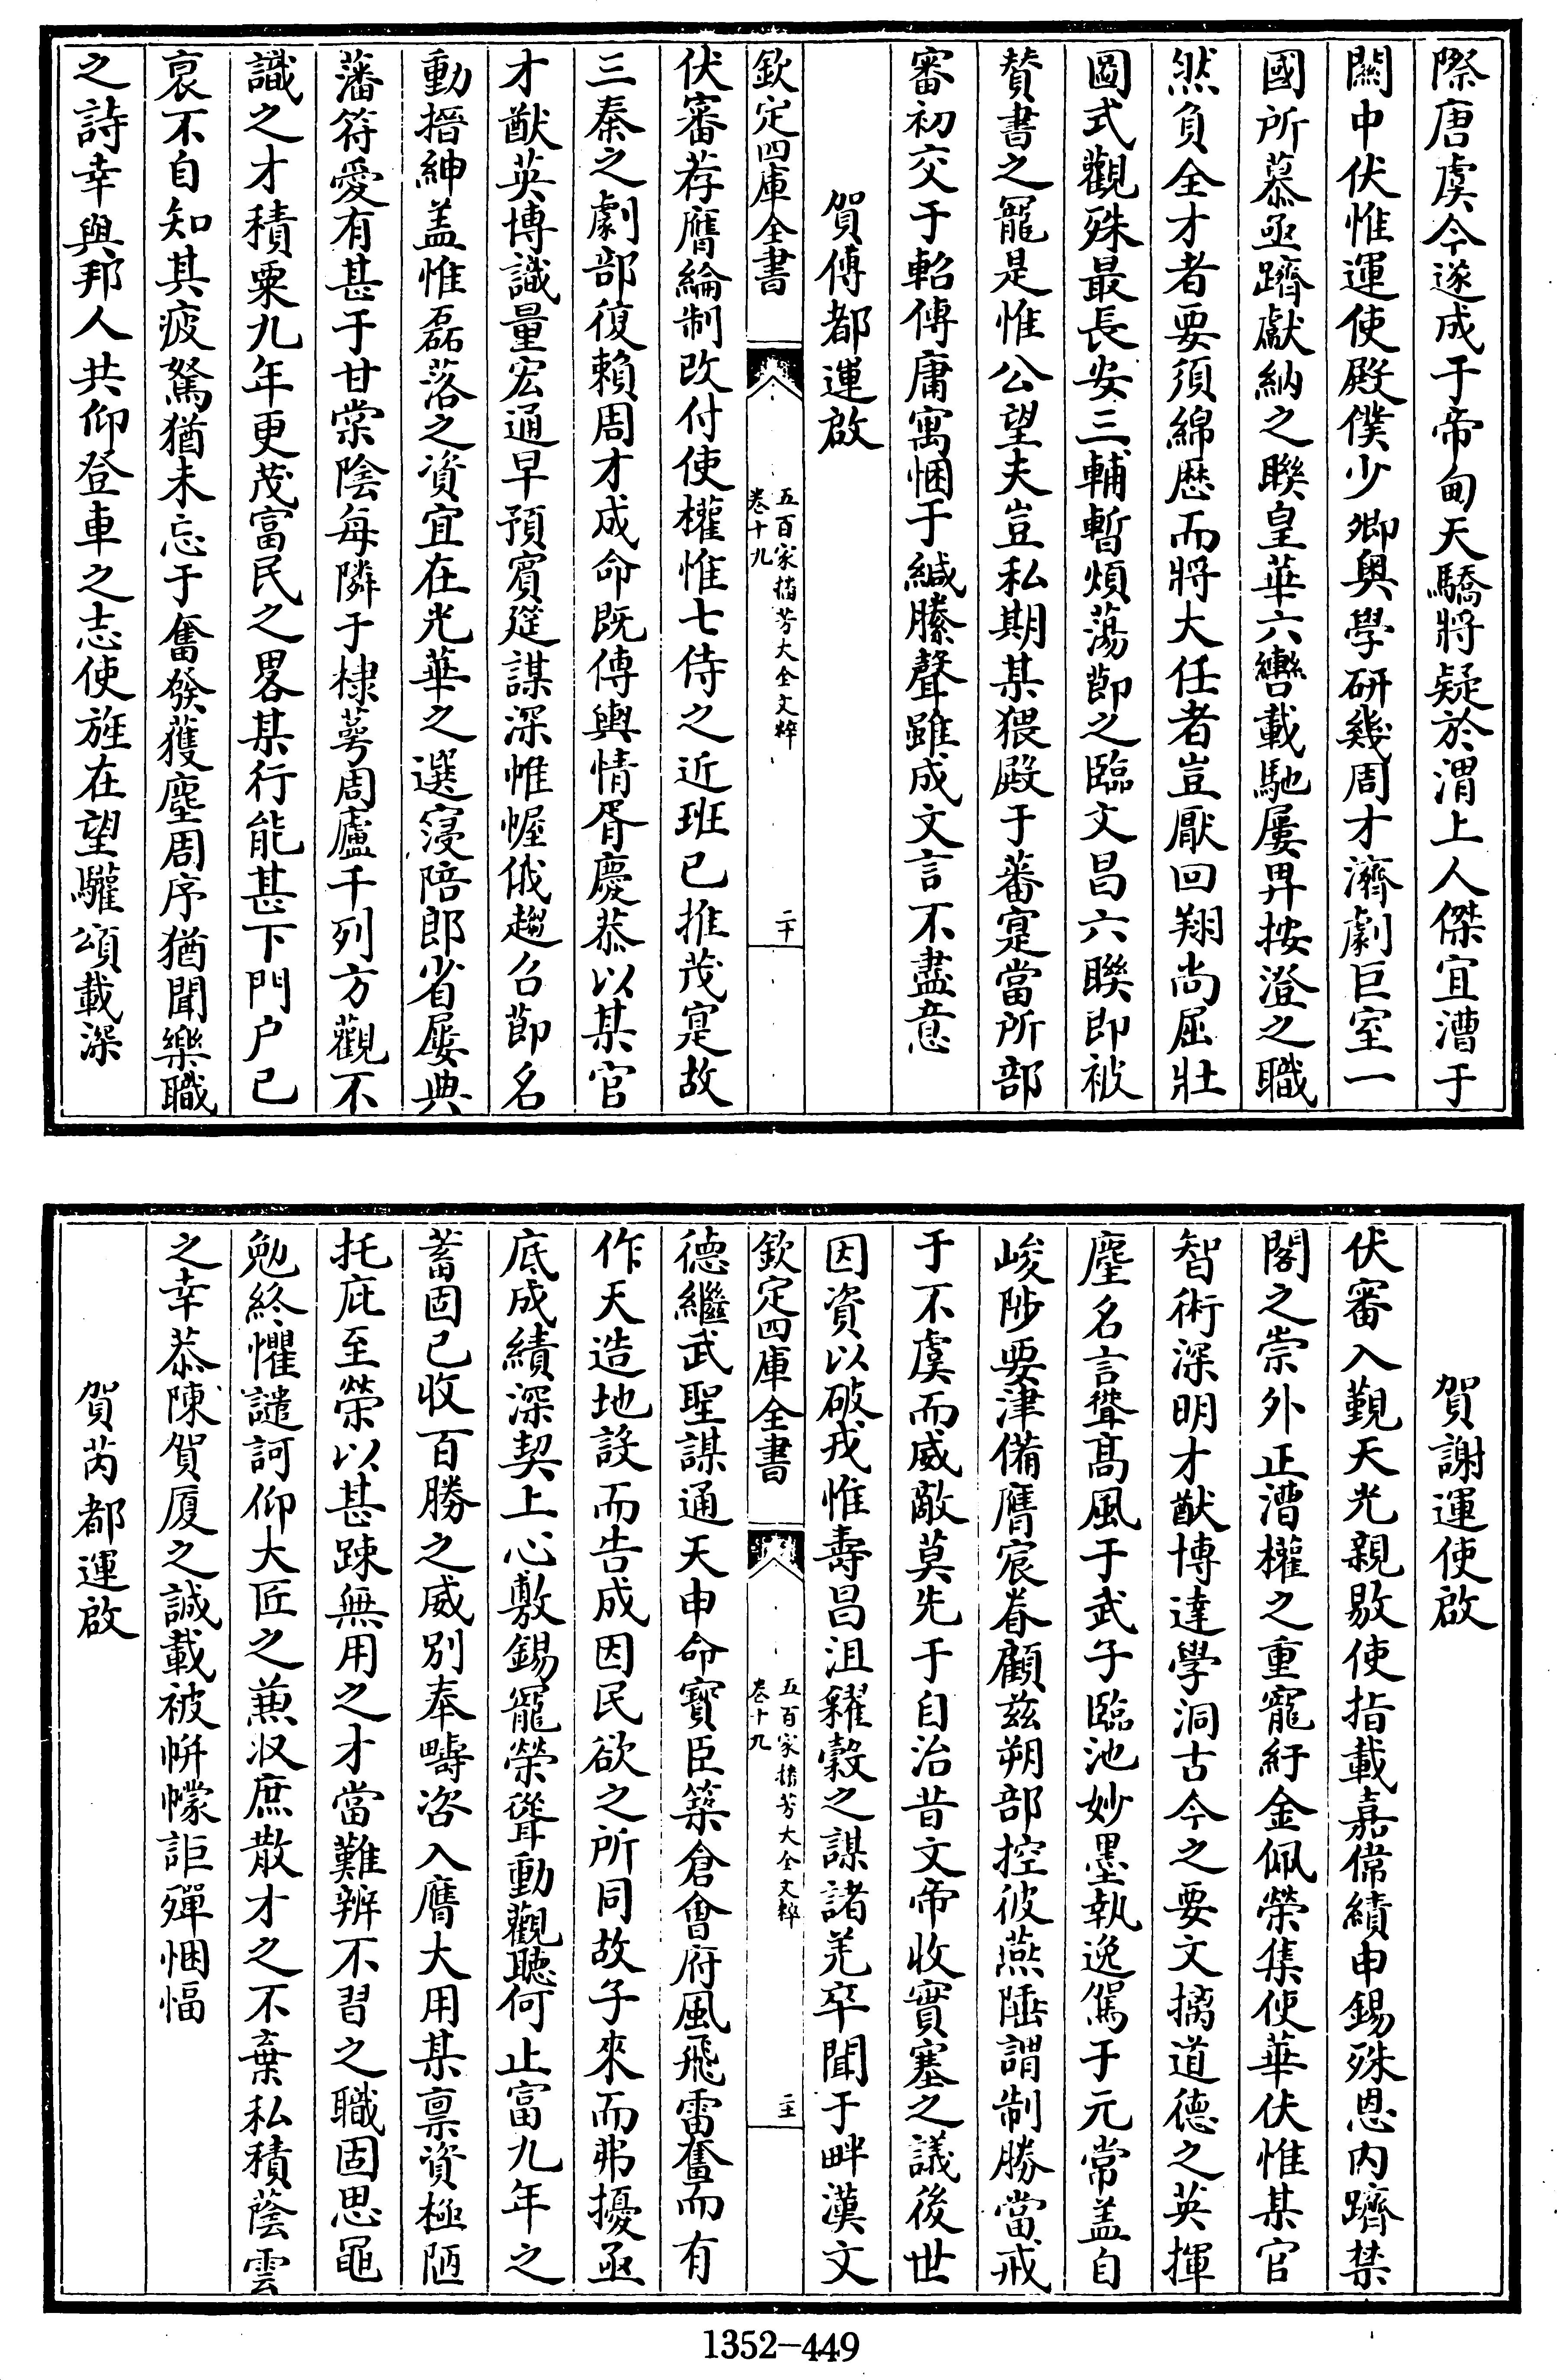 際唐虞今遂成于帝甸天驕將疑於渭上人傑宜漕于
關中伏惟運使殿僕少卿奧學研幾周才濟劇巨室一
國所慕亟躋獻納之聯皇華六轡載馳屢畀按澄之職
然負全才者要須綿歴而將大任者豈厭回翔尚屈壯
圖式觀殊最長安三輔暫煩蕩節之臨文昌六聯即被
賛書之寵是惟公望夫豈私期某猥殿于蕃寔當所部
審初交于軺傳庸寓悃于緘縢聲雖成文言不盡意
賀傅都運啟
欽定四庫全書
五百家播芳大全文粹
卷十九
二十
伏審荐膺綸制改付使權惟七侍之近班已推茂寔故
三秦之劇部復賴周才成命既傳輿情胥慶恭以某官
才猷英博識量宏通早預賓筵謀深帷幄俄趨召節名
動搢紳盖惟磊落之資宜在光華之選寖陪郎省屢典
藩符愛有甚于甘棠陰每隣于棣萼周廬千列方觀不
識之才積粟九年更茂富民之畧某行能甚下門户已
衰不自知其疲駑猶未忘于奮發獲塵周序猶聞樂職
之詩幸與邦人共仰登車之志使旌在望驩頌載深
賀謝運使啟
伏審入覲天光親敭使指載嘉偉績申錫殊恩内躋禁
閣之崇外正漕權之重寵紆金佩榮集使華伏惟某官
智術深明才猷博達學洞古今之要文摛道德之英揮
麈名言聳髙風于武子臨池妙墨執逸駕于元常盖自
峻陟要津備膺宸眷顧兹朔部控彼燕陲謂制勝當戒
于不虞而威敵莫先于自治昔文帝收實塞之議後世
因資以破戎惟壽昌沮糴穀之謀諸羌卒聞于畔漢文
欽定四庫全書
五百家播芳大全文粹
卷十九
二十一
德繼武聖謀通天申命寳臣築倉會府風飛雷奮而有
作天造地設而告成因民欲之所同故子來而弗擾亟
底成績深契上心敷錫寵榮聳動觀聽何止富九年之
蓄固已收百勝之威别奉疇咨入膺大用某禀資極陋
托庇至榮以甚踈無用之才當難辨不習之職固思黽
勉終懼譴訶仰大匠之兼収庶散才之不棄私積蔭雲
之幸恭陳賀厦之誠載被帡幪詎殫悃愊
賀芮都運啟
1352-449